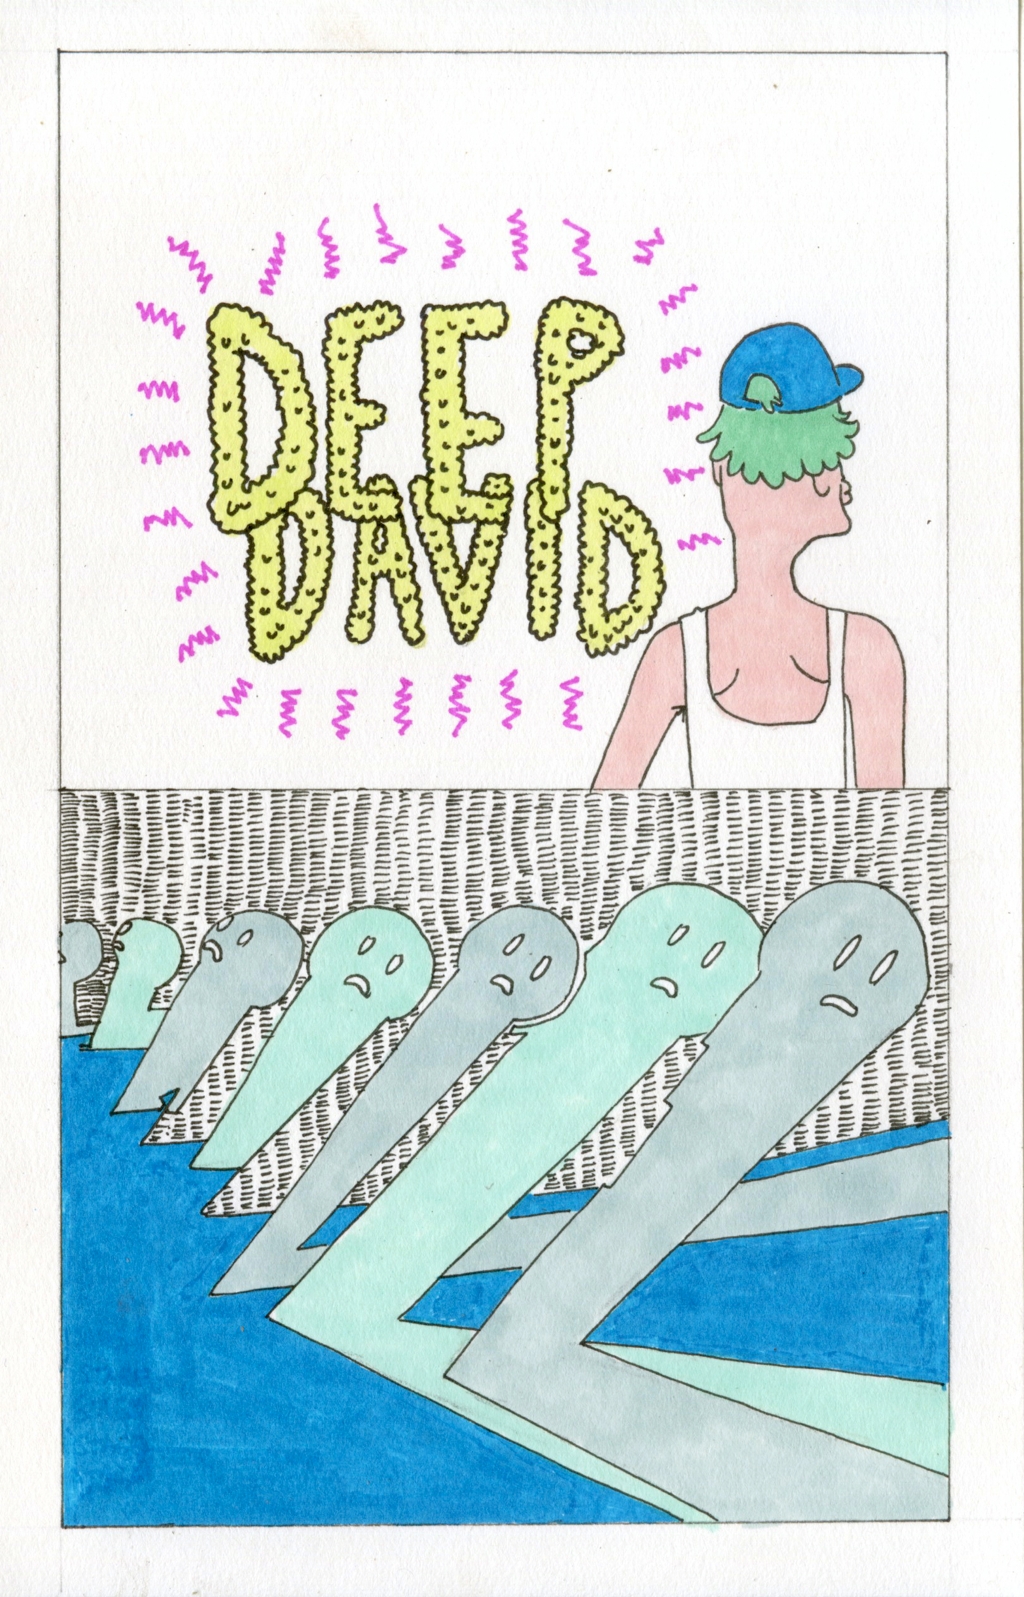 DEEP
DAVID